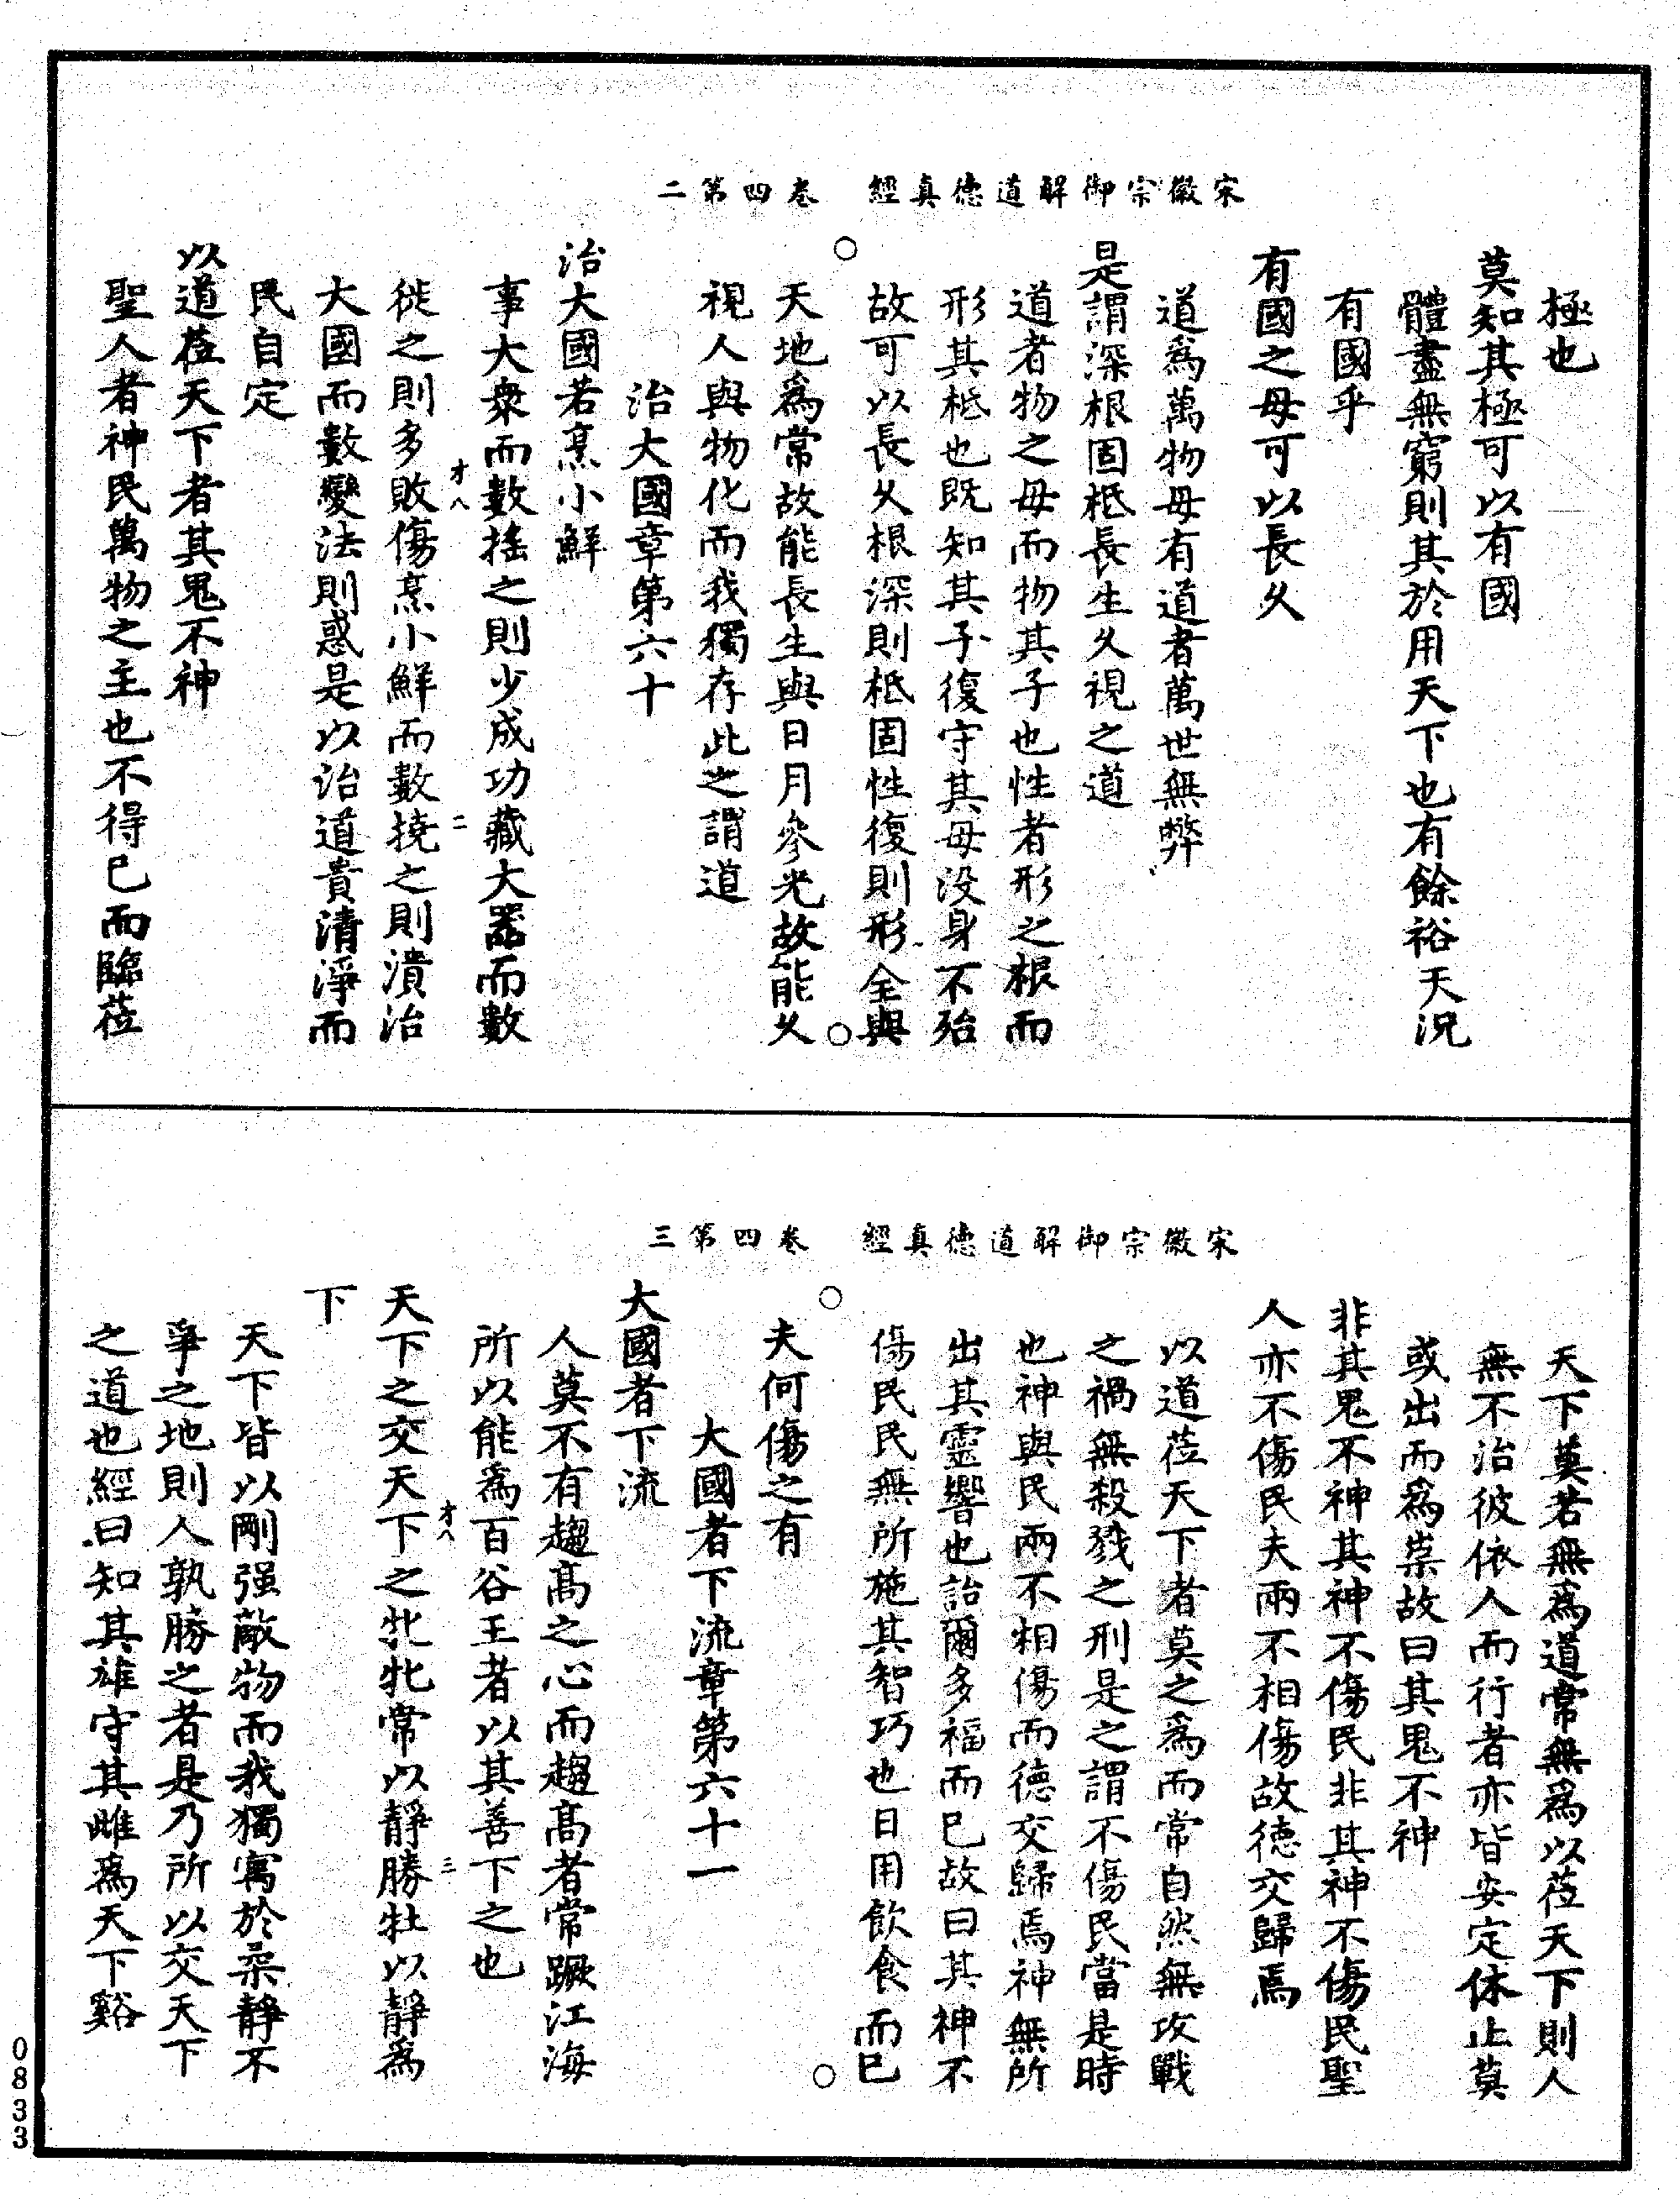 宋徽宗御解道德真經　卷四第二
極也
莫知其極可以有國
體盡無窮則其於用天下也有餘裕矣況
有國乎
有國之母可以長久
道爲萬物母有道者萬世無弊
是謂深根固柢長生久視之道
道者物之母而物其子也性者形之根而
形其柢也既知其子復守其母没身不殆
故可以長久根深則柢固性復則形全與
天地爲常故能長生與日月參光故能久
視人與物化而我獨存此之謂道
治大國章第六十
治大國若烹小鮮
事大衆而數搖之則少成功藏大器而數
徙之則多敗傷烹小鮮而數撓之則潰治
才八　二
大國而數變法則惑是以治道貴清淨而
民自定
以道莅天下者其鬼不神
聖人者神民萬物之主也不得已而臨莅
宋徽宗御解道德真經　卷四第三
天下莫若無爲道常無爲以莅天下則人
無不治彼依人而行者亦皆安定休止莫
或出而爲祟故曰其鬼不神
非其鬼不神其神不傷民非其神不傷民聖
人亦不傷民夫兩不相傷故德交歸焉
以道莅天下者莫之爲而常自然無攻戰
之禍無殺戮之刑是之謂不傷民當是時
也神與民兩不相傷而德交歸焉神無所
出其靈響也詒爾多福而已故曰其神不
傷民民無所施其智巧也日用飲食而已
夫何傷之有
大國者下流章第六十一
大國者下流
人莫不有趨高之心而趨高者常蹶江海
所以能爲百谷王者以其善下之也
才八　三
天下之交天下之牝牝常以靜勝牡以靜爲
下
天下皆以剛强敵物而我獨寓於柔靜不
爭之地則人孰勝之者是乃所以交天下
之道也經曰知其雄守其雌爲天下谿
0833